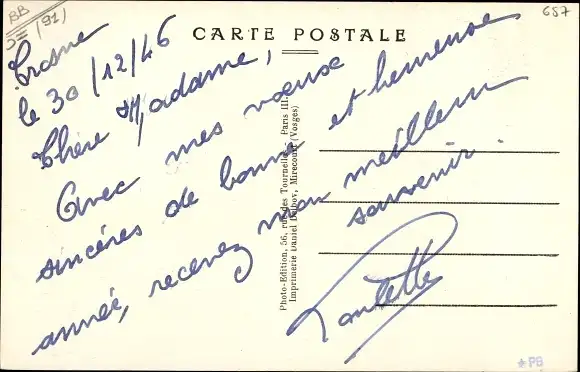 BB
(91)
657
CARTE POSTALE
Crosne
le 30/12/46
Chère Madame,
Avec mes voeux
sincères de bonne et heureuse
année, recevez mon meilleur
souvenir.
Paulette
Photo-Edition, 56, rue des Tournelles - Paris III.
Imprimerie Daniel Delboy, Mirecourt (Vosges)
*PB